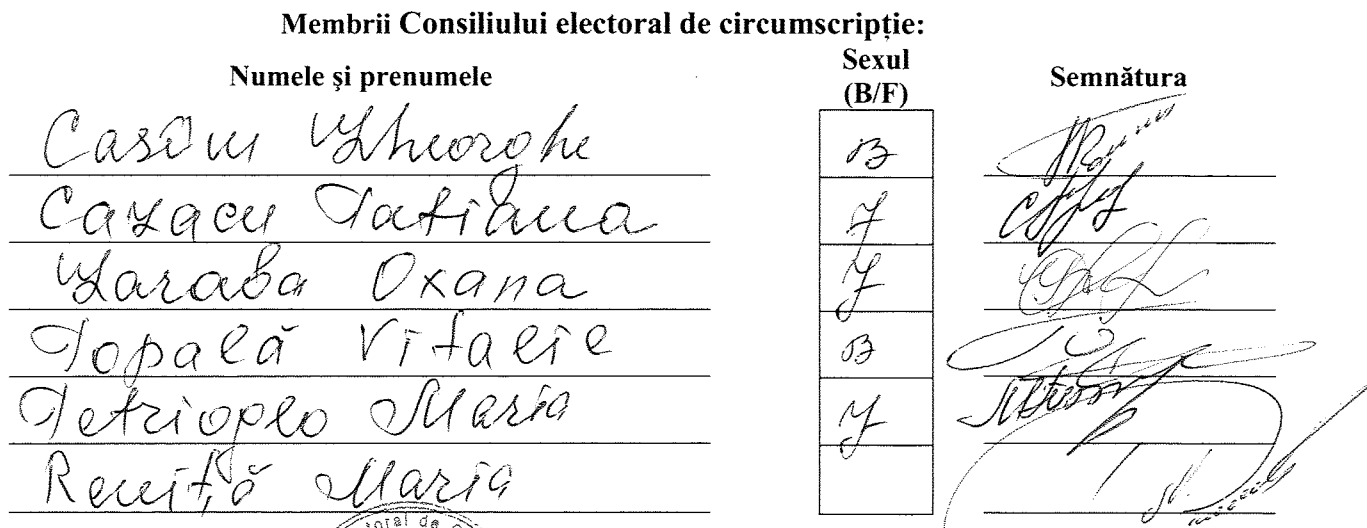 Membrii Consiliului electoral de circumscripție:
Numele și prenumele Sexul (B/F) Semnătura
Casîm Gheorghe B
Cazacu Tatiana F
Oxana F
Topală Vitalie B
Maria F
Reniță Maria
toral de